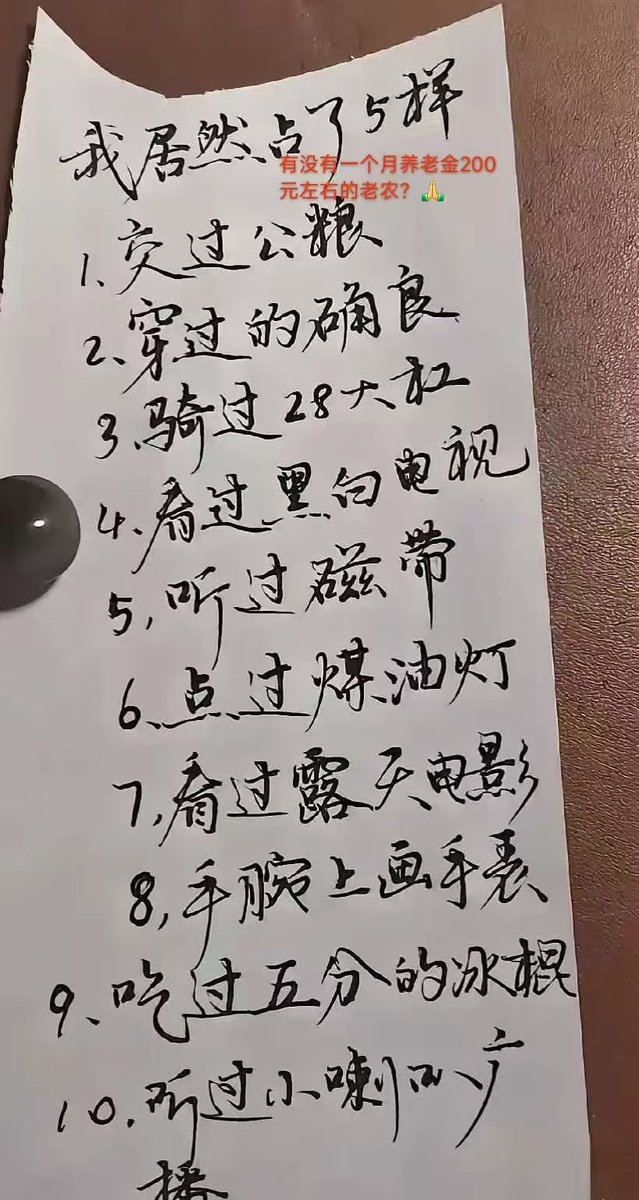 我居然占了5样
有没有一个月养老金200
元左右的老农？🙏
1、交过公粮
2、穿过的确良
3、骑过28大杠
4、看过黑白电视
5，听过磁带
6、点过煤油灯
7，看过露天电影
8，手腕上画手表
9、吃过五分的冰棍
10、听过小喇叭广
播